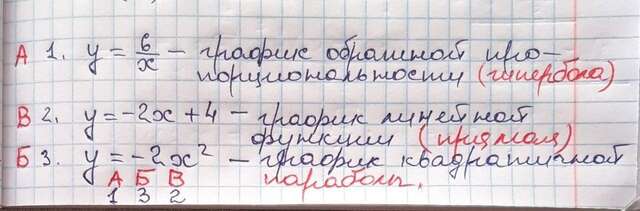 А 1. y = 6/x – график обратной про-
порциональности (гипербола)
В 2. y = -2x + 4 – график линейной
функции (прямая)
Б 3. y = -2x² – график квадратичной
А Б В параболы.
1 3 2